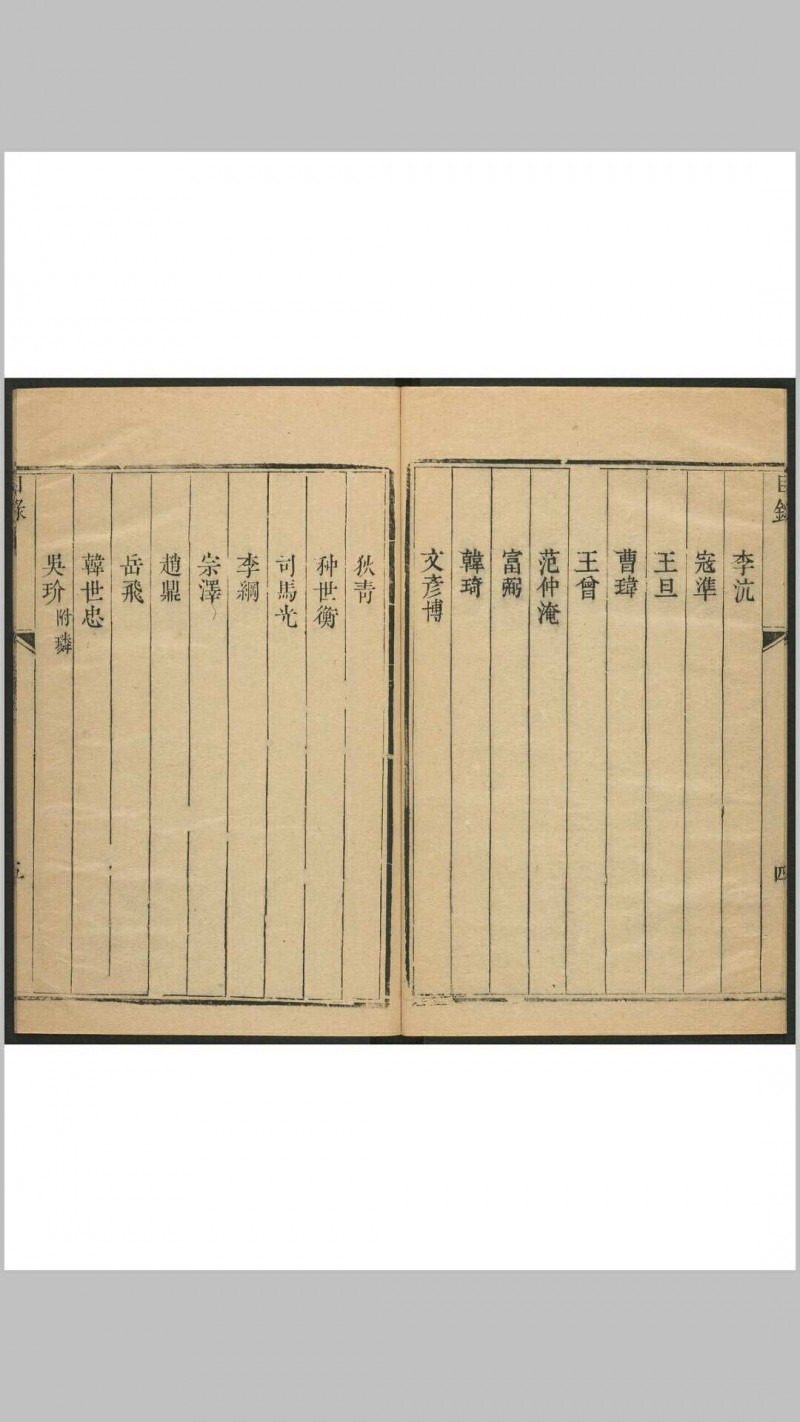 目錄
李沆
寇準
王旦
曹瑋
王曾
范仲淹
富弼
韓琦
文彥博
四
狄青
种世衡
司馬光
李綱
宗澤
趙鼎
岳飛
韓世忠
吳玠附璘
目錄
五